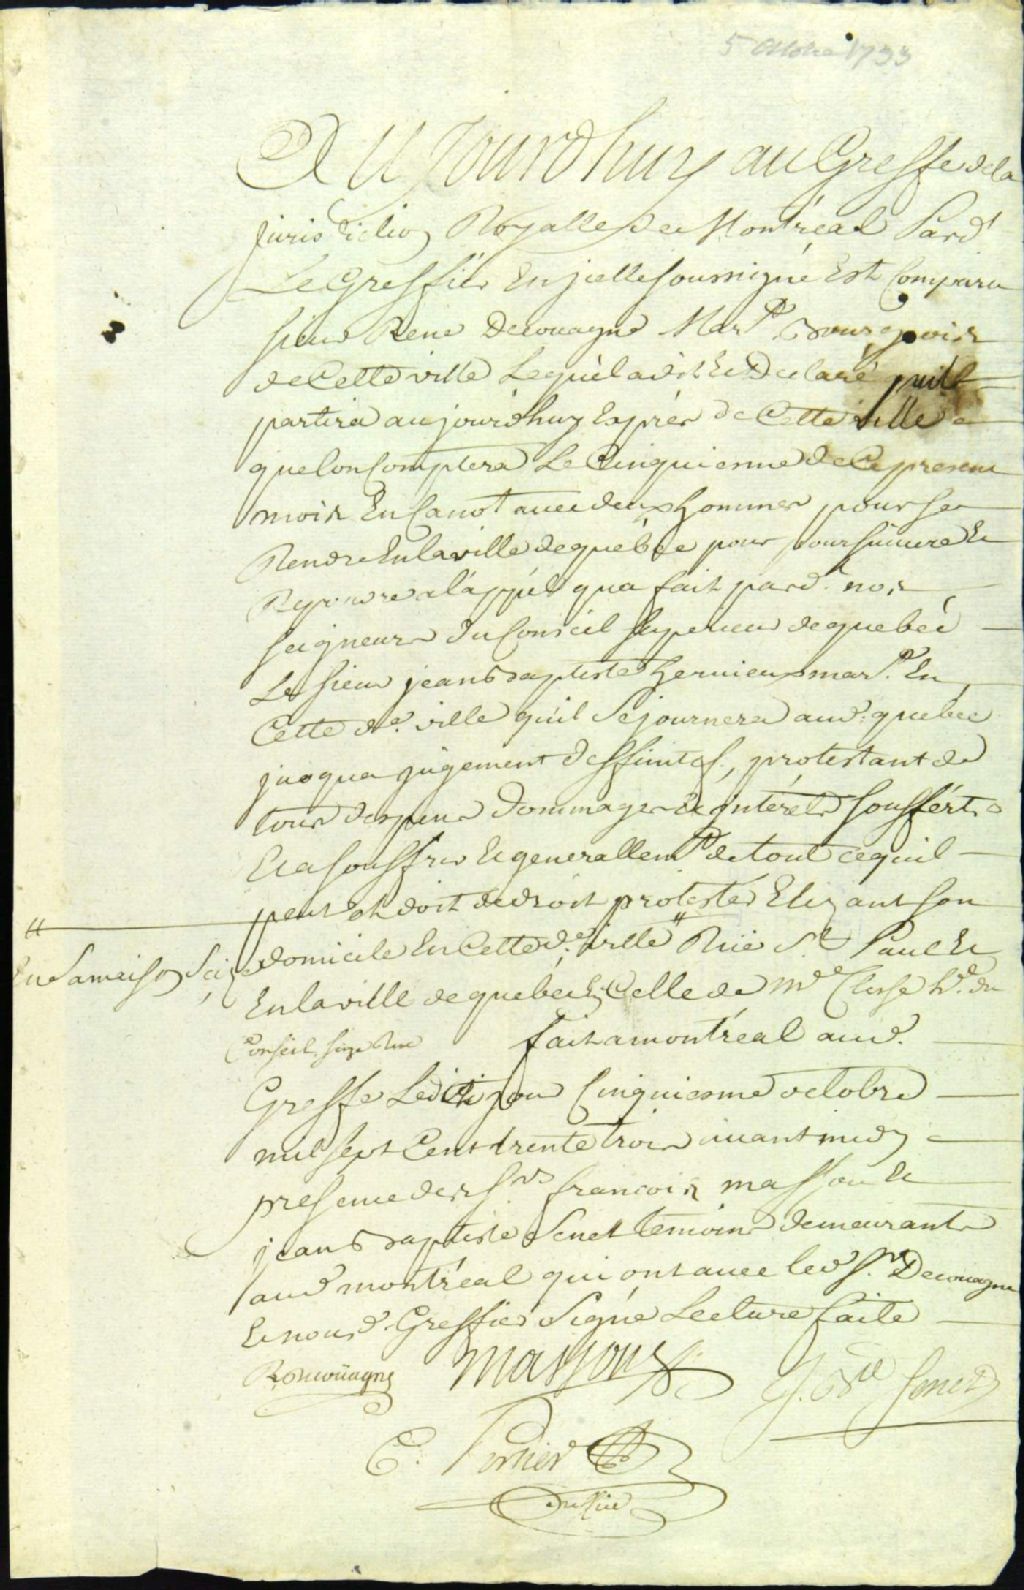 5 Octobre 1733
AUJourdhuy au Greffe dela
Jurisdiction Royalle de Montréal Pard.
Le Greffier En jcelle soussigné Est Comparu
sieur René Decouagne Mar.d Bourgeois
de Cette ville Lequel a dit Et Declaré quil
partira aujourdhuy Exprés de Cette ville
que lon Comptera Le Cinquiesme de Ce present
mois En Canot avec deux hommes pour se
Rendre En la ville de quebec pour poursuivre Et
Repondre a l'appel qua fait pard. nos
seigneurs du Conseil superieur de quebec
Le sieur jean Baptiste hervieux mar.d En
Cette d.e ville quil Sejournera aud. quebec
jusqua jugement deffinitif, protestant de
tous depens dommages Et jnterets soufferts
Et a souffrir Et generallem.t de tout ce quil
peut Et doit de droit protester Elizant son
domicile En Cette d.e ville " Rüe S.t Paul Et
" En sa maison Size
En la ville de quebec En Celle de M.e Clesse h.r du
Conseil, size Rue fait a montréal aud.
Greffe Ledit jour Cinquiesme octobre
mil sept Cent trente trois avant midy
presence des S.rs francois masson Et
jean Baptiste Senet temoins demeurants
aud. montréal qui ont avec led. S.r Decouagne
Et nous d. Greffier Signé Lecture faite
R Decoüagne Masson J. Bte Senet
C. Porlier
Greffier